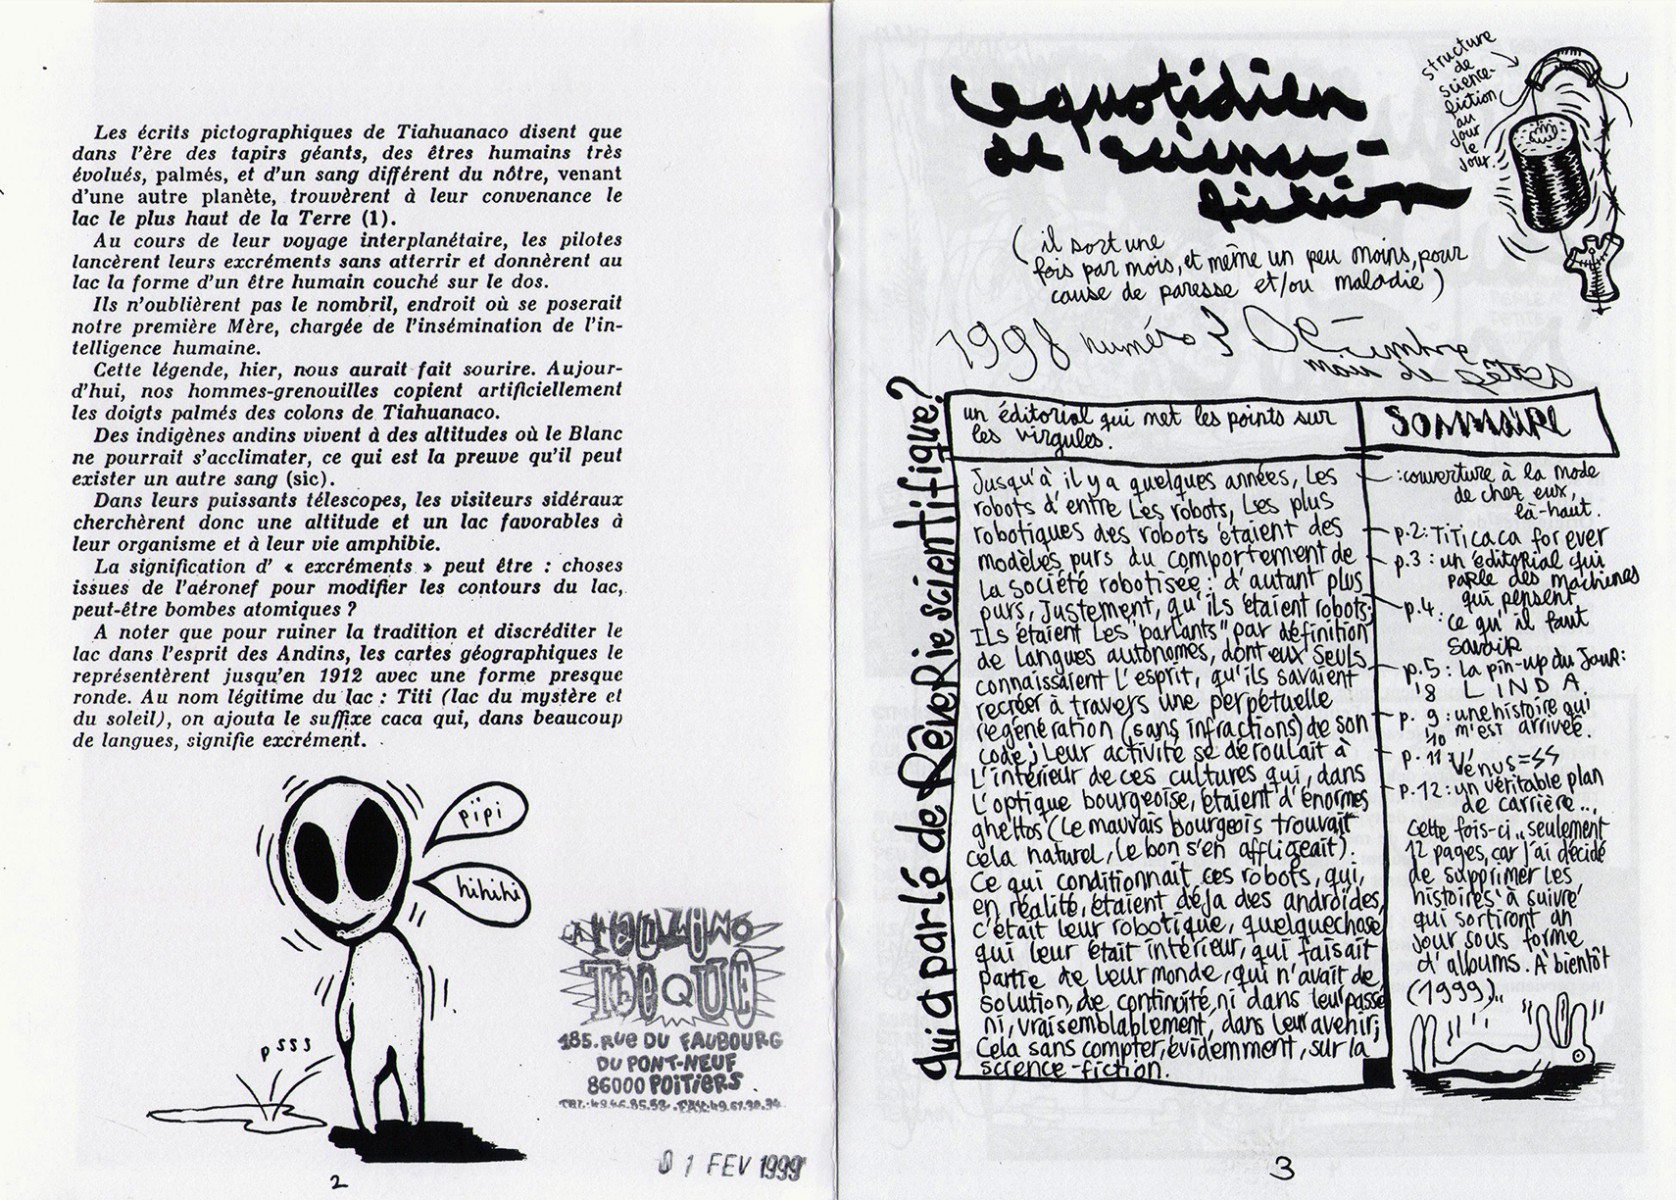 Les écrits pictographiques de Tiahuanaco disent que
dans l'ère des tapirs géants, des êtres humains très
évolués, palmés, et d'un sang différent du nôtre, venant
d'une autre planète, trouvèrent à leur convenance le
lac le plus haut de la Terre (1).
Au cours de leur voyage interplanétaire, les pilotes
lancèrent leurs excréments sans atterrir et donnèrent au
lac la forme d'un être humain couché sur le dos.
Ils n'oublièrent pas le nombril, endroit où se poserait
notre première Mère, chargée de l'insémination de l'in-
telligence humaine.
Cette légende, hier, nous aurait fait sourire. Aujour-
d'hui, nos hommes-grenouilles copient artificiellement
les doigts palmés des colons de Tiahuanaco.
Des indigènes andins vivent à des altitudes où le Blanc
ne pourrait s'acclimater, ce qui est la preuve qu'il peut
exister un autre sang (sic).
Dans leurs puissants télescopes, les visiteurs sidéraux
cherchèrent donc une altitude et un lac favorables à
leur organisme et à leur vie amphibie.
La signification d' « excréments » peut être : choses
issues de l'aéronef pour modifier les contours du lac,
peut-être bombes atomiques ?
A noter que pour ruiner la tradition et discréditer le
lac dans l'esprit des Andins, les cartes géographiques le
représentèrent jusqu'en 1912 avec une forme presque
ronde. Au nom légitime du lac : Titi (lac du mystère et
du soleil), on ajouta le suffixe caca qui, dans beaucoup
de langues, signifie excrément.
pïpi
hihihi
psss
LA FANZINO
THEQUE
185.RUe DU FAUBOURG
DU PONT-NEUF
86000 POiTiERS
TEL:49.46.85.58.FAX:49.61.30.34
01 FEV 1999
2
Le quotidien
de science-
fiction
structure
de
science-
fiction
au
jour
le
jour.
(il sort une
fois par mois, et même un peu moins, pour
cause de paresse et/ou maladie)
1998 numéro 3 Dé-
cembre
mois de fêtes
qui a parlé de RêveRie scientifique?
un éditorial qui met les points sur
les virgules.
Jusqu'à il y a quelques années, Les
robots d'entre Les robots, Les plus
robotiques des robots étaient des
modèles purs du comportement de
la société robotisée : d'autant plus
purs, justement, qu'ils étaient robots;
ILs étaient Les "parlants" par définition
de langues autonomes, dont eux seuls
connaissaient L'esprit, qu'ils savaient
recréer à travers une perpétuelle
régénération (sans infractions) de son
code; Leur activité se déroulait à
L'intérieur de ces cultures qui, dans
L'optique bourgeoise, étaient d'énormes
ghettos (Le mauvais bourgeois trouvait
cela naturel, le bon s'en affligeait).
Ce qui conditionnait ces robots, qui,
en réalité, étaient déja des androïdes,
c'était leur robotique, quelquechose
qui leur était intérieur, qui faisait
partie de leur monde, qui n'avait de
solution, de continuité, ni dans leur passé
ni, vraisemblablement, dans leur avenir;
Cela sans compter, évidemment, sur la
science-fiction.
SOMMAIRE
:couverture à la mode
de chez eux,
là-haut.
p.2: TiTicaca for ever
p.3 : un éditorial qui
parle des machines
qui pensent
p.4 : ce qu'il faut
savoir
p.5 : La pin-up du Jour:
'8 LINDA.
p. 9 : une histoire qui
'10 m'est arrivée.
p.11 Vénus=SS
p.12: un véritable plan
de carrière...
Cette fois-ci.. seulement
12 pages, car j'ai décidé
de supprimer les
histoires 'à suivre'
qui sortiront un
jour sous forme
d'albums. A bientôt
(1999)..
3